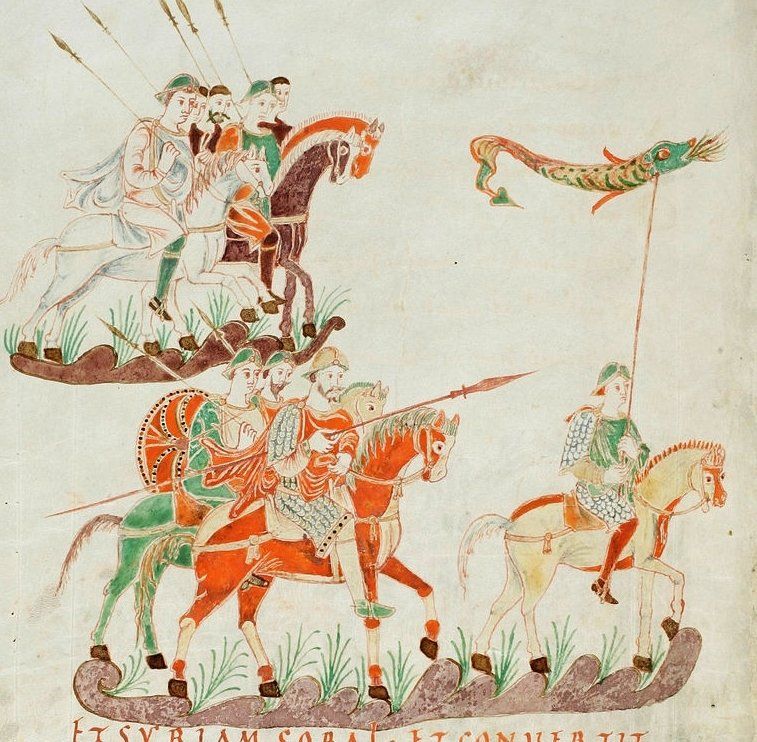 ET SYRIAM SOBAL· ET CONVERTIT